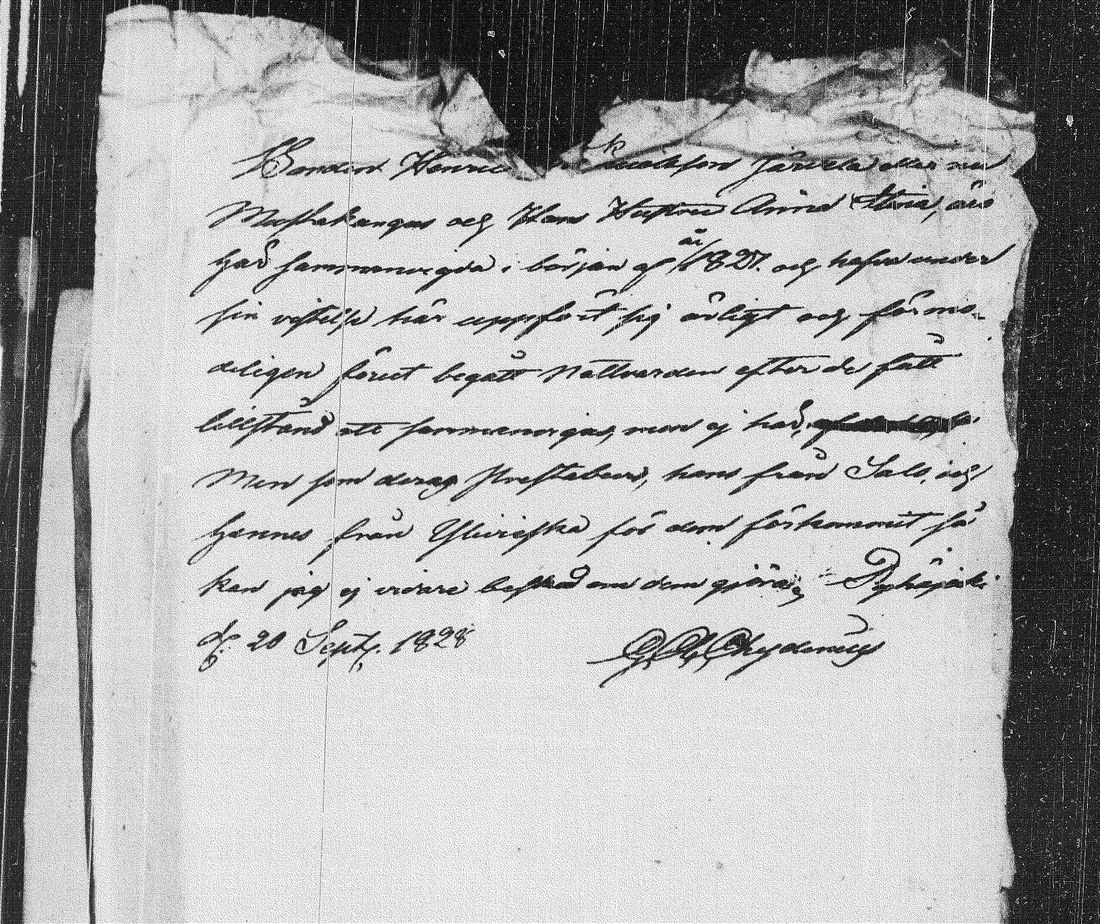 Bonden Henric Järvela eller nu
Mustakangas och Hans Hustru Anna Stina, äro
här sammanvigda i början af år 1827. och hafva under
sin vistelse här uppfört sig ärligt och förmo-
deligen förut begått Nattvarden efter de fått
tillstånd att sammanvigas, men ej här,
Men som deras Prestebevis, hans från Salo, och
hennes från Ylivieska för dem förkommit så
kan jag ej vidare besked om dem gjöra, Pyhäjoki
d. 20 Sept. 1828 Chydenius